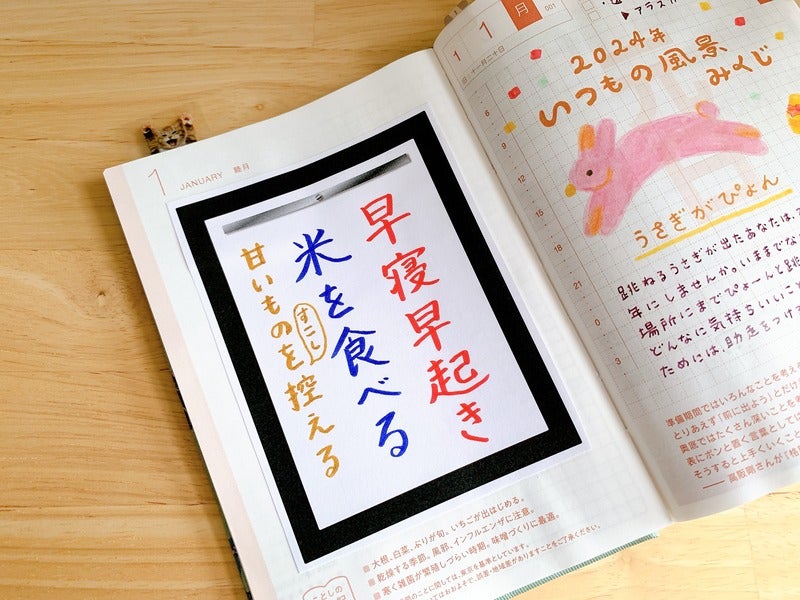 1 JANUARY 睦月
早寝早起き
米を食べる
甘いものを控える
すこし
大根、白菜、ぶりが旬。いちごが出はじめる。
乾燥する季節。風邪、インフルエンザに注意。
寒く雑菌が繁殖しづらい時期。味噌づくりに最適。
1 1 月
001
2024年
いつもの風景
みくじ
6
9
12
15
18
21
0
3
うさぎがぴょん
跳ねるうさぎが出たあなたは、
年にしませんか。いままでな
場所にまでぴょーんと跳
どんなに気持ちいいこ
ためには、助走をつけ
準備期間ではいろんなことを考え
とりあえず「前に出よう」とだけ
奥底ではたくさん深いことを
表にポンと置く言葉として
そうすると上手くいくこ